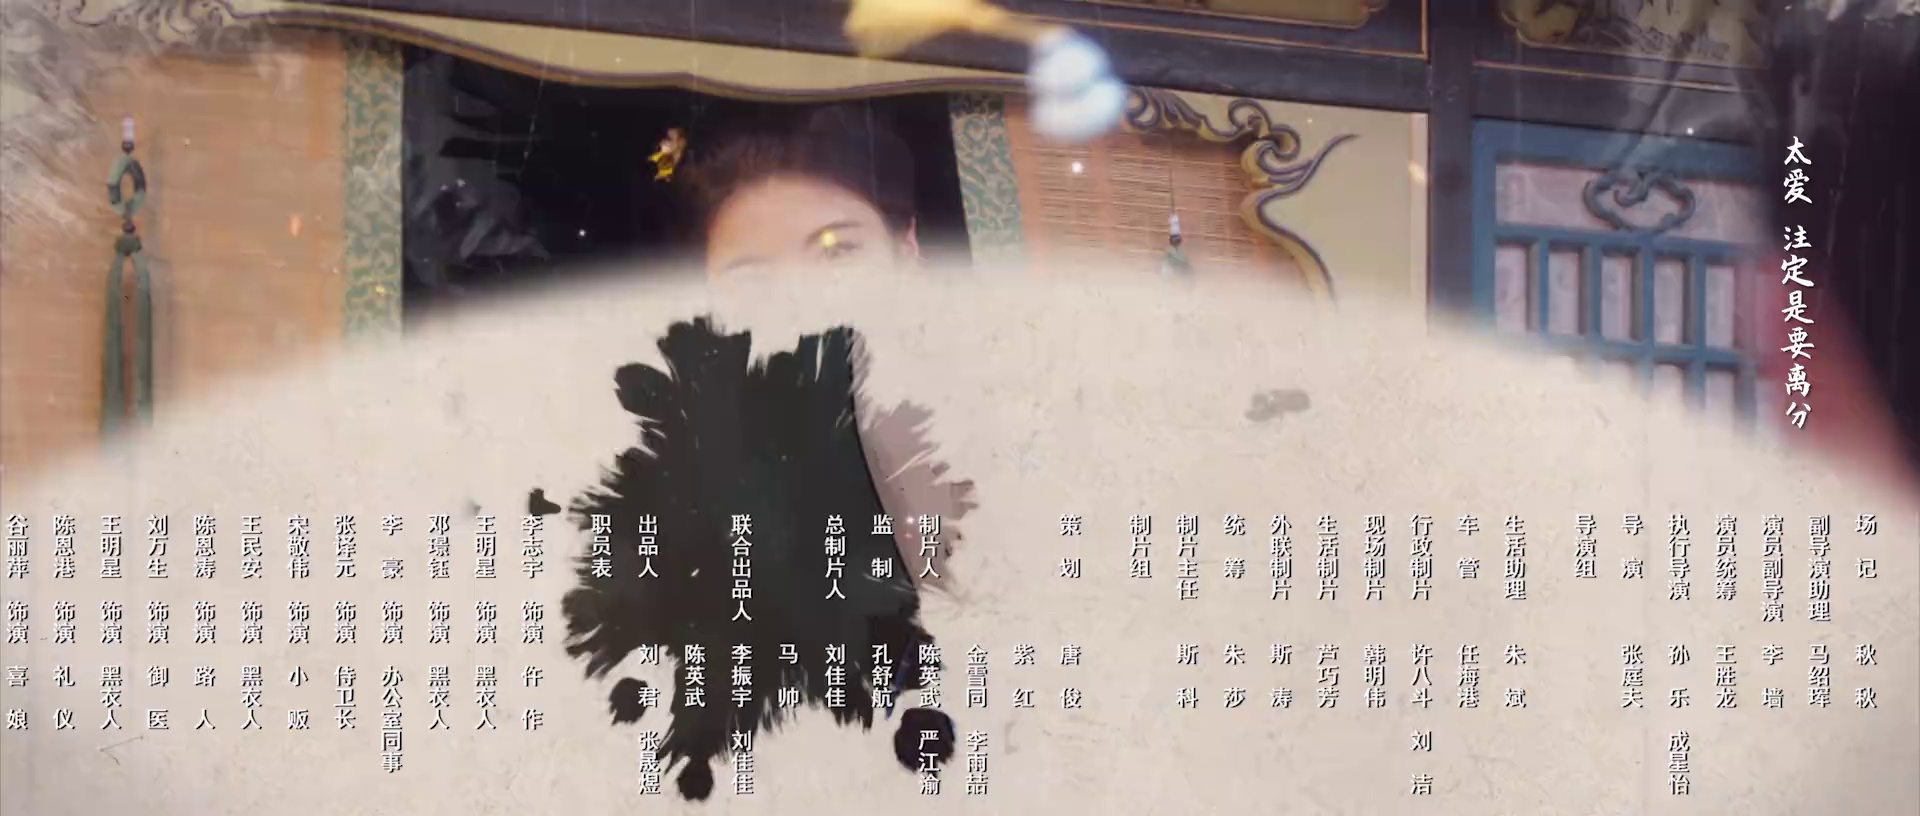 太爱 注定是要离分
谷丽萍 饰演 喜娘
陈恩港 饰演 礼仪
王明星 饰演 黑衣人
刘万生 饰演 御医
陈恩涛 饰演 路人
王民安 饰演 黑衣人
宋敬伟 饰演 小贩
张译元 饰演 侍卫长
李豪 饰演 办公室同事
邓璟钰 饰演 黑衣人
王明星 饰演 黑衣人
李志宇 饰演 仵作
职员表
出品人 刘君 张晟煜
陈英武
联合出品人 李振宇 刘佳佳
马帅
总制片人 刘佳佳
监制 孔舒航
制片人 陈英武 严江渝
金雪同 李雨喆
紫红
策划 唐俊
制片组
制片主任 斯科
统筹 朱莎
外联制片 斯涛
生活制片 芦巧芳
现场制片 韩明伟
行政制片 许八斗 刘洁
车管 任海港
生活助理 朱斌
导演组
导演 张庭夫
执行导演 孙乐 成星怡
演员统筹 王胜龙
演员副导演 李墙
副导演助理 马绍珲
场记 秋秋